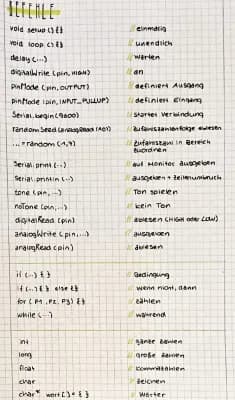 BEFEHLE
void setup () {} // einmalig
void loop () {} // unendlich
delay (...) // warten
digitalWrite (pin, HIGH) // an
pinMode (pin, OUTPUT) // definiert Ausgang
pinMode (pin, INPUT_PULLUP) // definiert Eingang
Serial.begin (9600) // startet Verbindung
randomSeed (analogRead (A0)) // Zufallszahlenfolge ablesen
... = random (1,9) // Zufallszahl in Bereich zuordnen
Serial.print (...) // auf Monitor ausgeben
Serial.println (...) // ausgeben + Zeilenumbruch
tone (pin, ...) // Ton spielen
noTone (pin, ...) // kein Ton
digitalRead (pin) // ablesen (HIGH oder LOW)
analogWrite (pin, ...) // ausgeben
analogRead (pin) // ablesen
if (...) {} // Bedingung
if (...) {} else {} // wenn nicht, dann
for (P1, P2, P3) {} // zählen
while (...) // während
int // ganze Zahlen
long // große Zahlen
float // Kommazahlen
char // Zeichen
char* wort [] = {} // Wörter